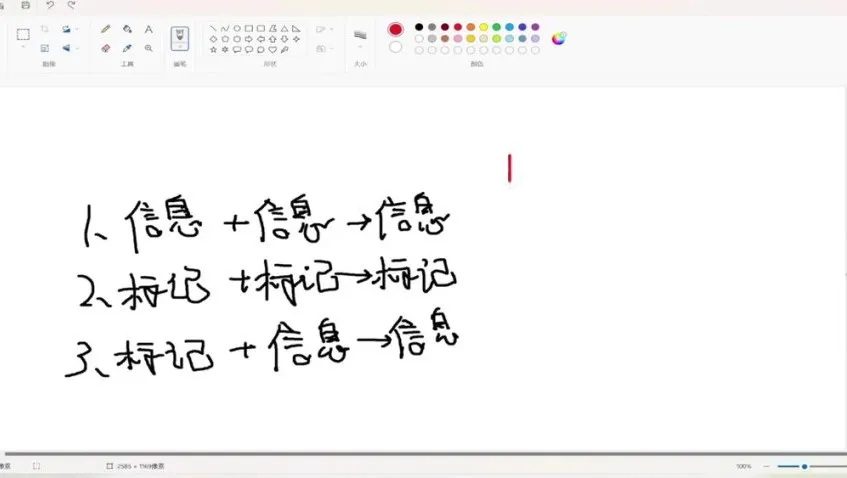 图像
工具
画笔
形状
大小
颜色
1、信息+信息→信息
2、标记+标记→标记
3、标记+信息→信息
像素
2585 × 1169像素
100%